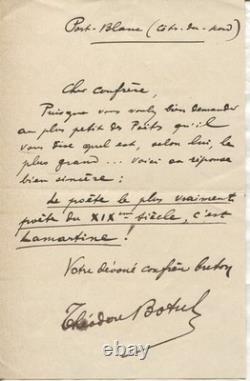 Port-Blanc (Côtes-du-Nord)
Cher confrère,
Puisque vous voulez bien demander
au plus petit des Poëtes qu'il
vous dise quel est, selon lui, le
plus grand... voici sa réponse
bien sincère :
Le poëte le plus vraiment
poëte du XIXème siècle, c'est
Lamartine !
Votre dévoué confrère breton
Théodore Botrel